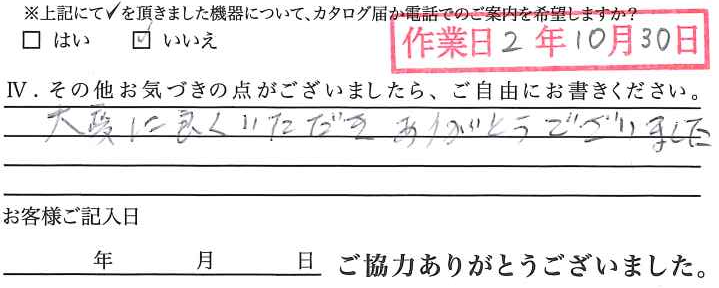 ※上記にて✓を頂きました機器について、カタログ届か電話でのご案内を希望しますか?
□ はい ☑ いいえ
作業日2年10月30日
Ⅳ.その他お気づきの点がございましたら、ご自由にお書きください。
大変に良くいただき ありがとうございました
お客様ご記入日
年 月 日 ご協力ありがとうございました。